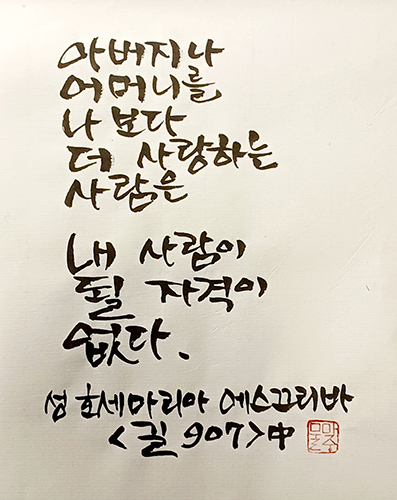 아버지나
어머니를
나보다
더 사랑하는
사람은
내 사람이
될 자격이
없다.
성 호세마리아 에스끄리바
<길 907>中